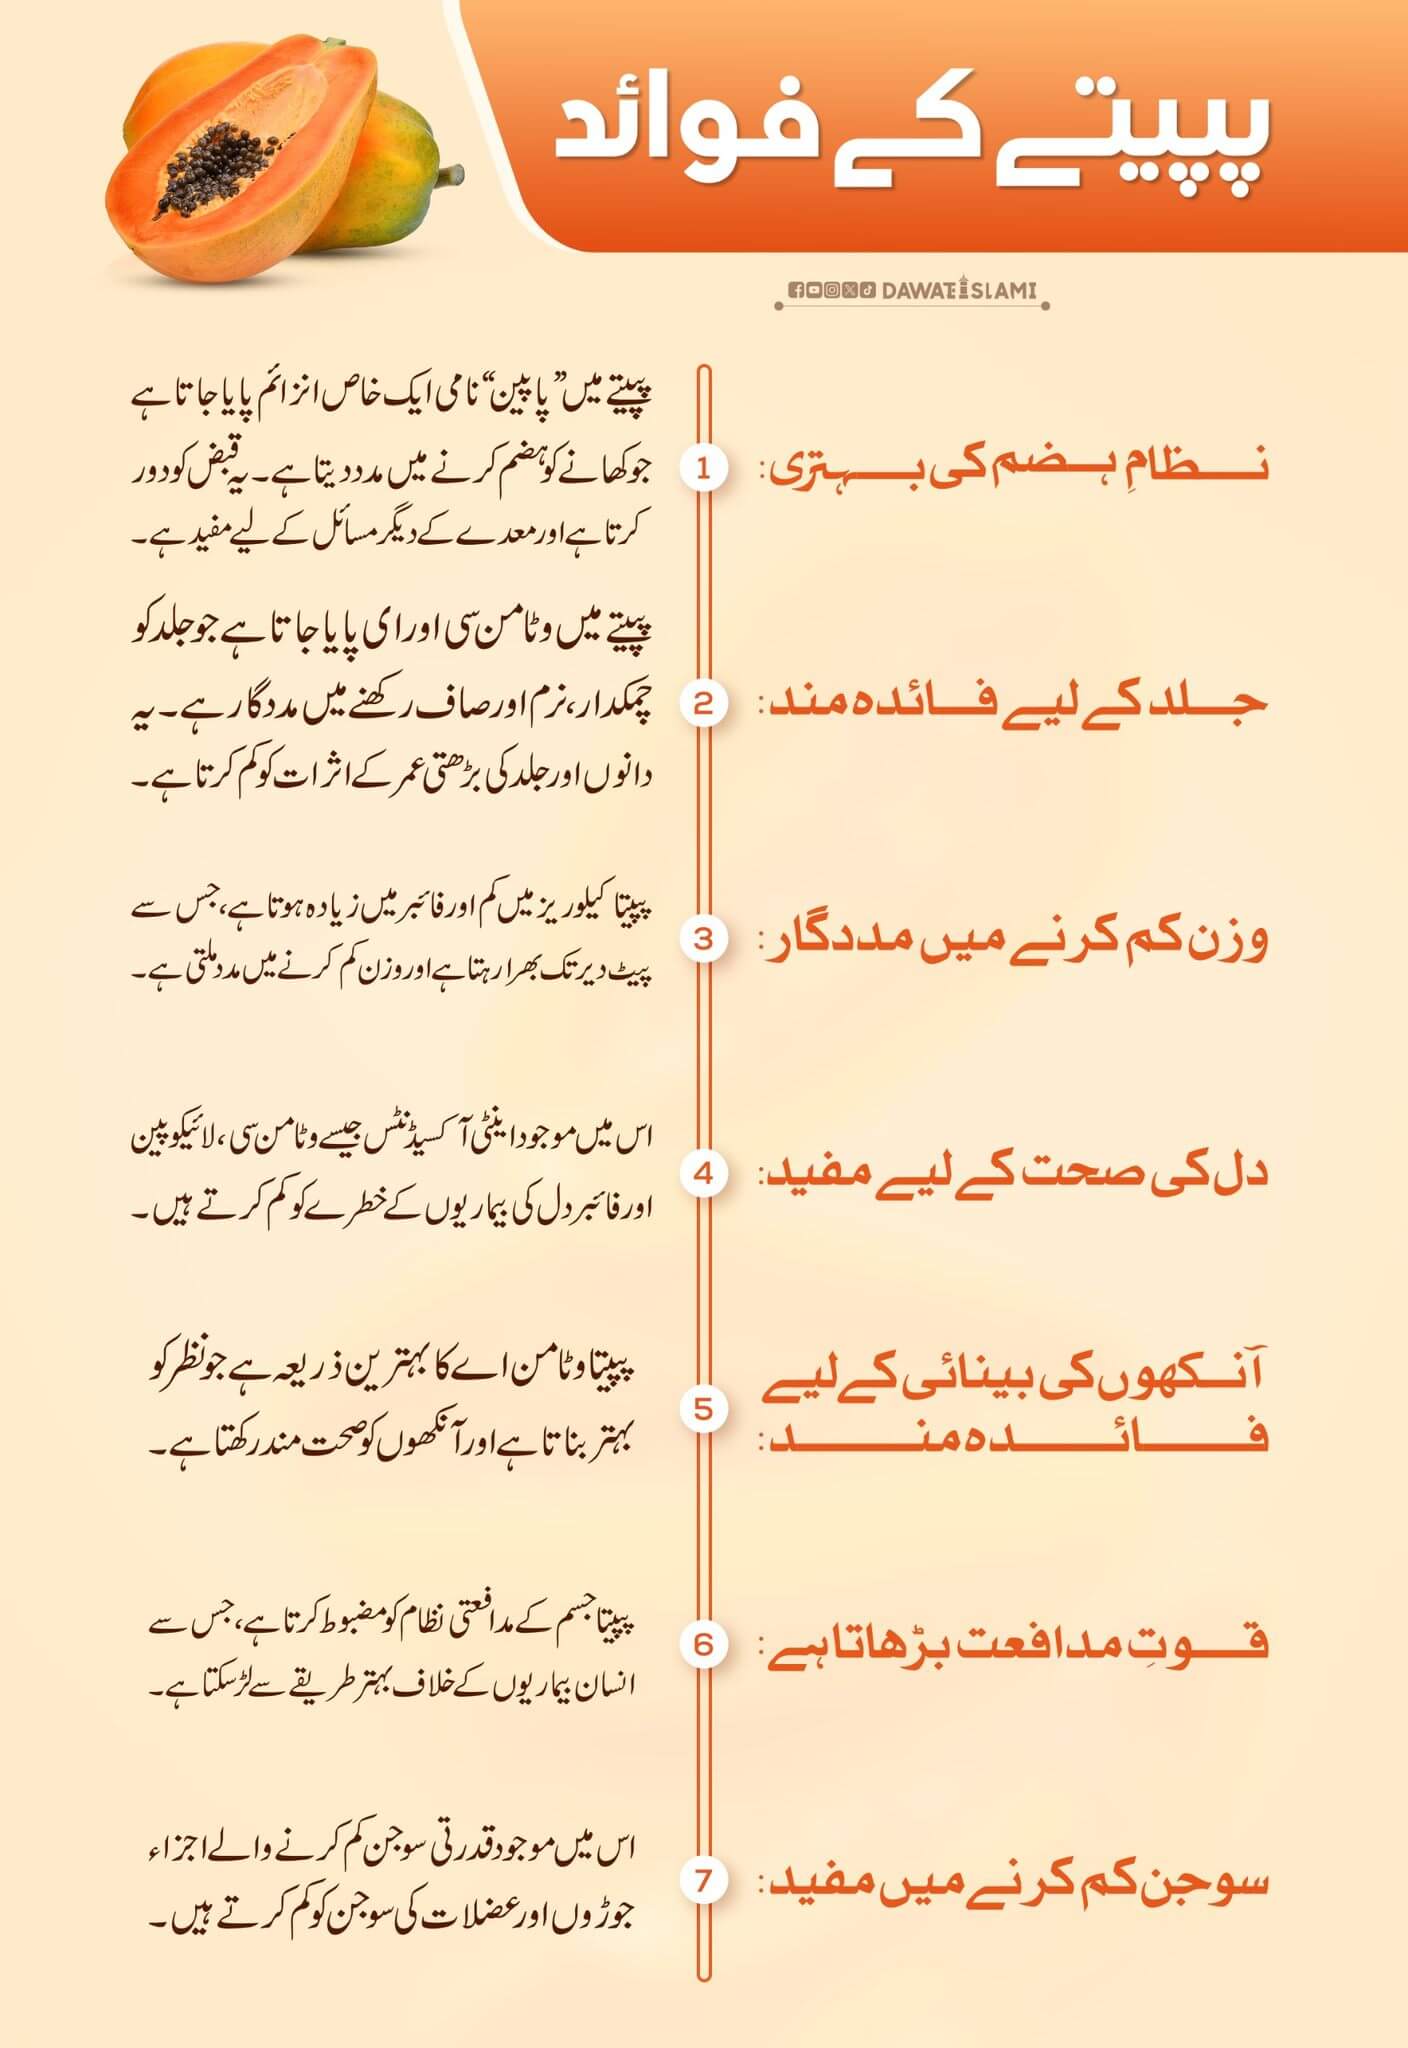 پپیتے کے فوائد
DAWATEISLAMI
نظامِ ہضم کی بہتری:
1
پپیتے میں ”پاپین“ نامی ایک خاص انزائم پایا جاتا ہے
جو کھانے کو ہضم کرنے میں مدد دیتا ہے۔ یہ قبض کو دور
کرتا ہے اور معدے کے دیگر مسائل کے لیے مفید ہے۔
جلد کے لیے فائدہ مند:
2
پپیتے میں وٹامن سی اور ای پایا جاتا ہے جو جلد کو
چمکدار، نرم اور صاف رکھنے میں مددگار ہے۔ یہ
دانوں اور جلد کی بڑھتی عمر کے اثرات کو کم کرتا ہے۔
وزن کم کرنے میں مددگار:
3
پپیتا کیلوریز میں کم اور فائبر میں زیادہ ہوتا ہے، جس سے
پیٹ دیر تک بھرا رہتا ہے اور وزن کم کرنے میں مدد ملتی ہے۔
دل کی صحت کے لیے مفید:
4
اس میں موجود اینٹی آکسیڈنٹس جیسے وٹامن سی، لائیکوپین
اور فائبر دل کی بیماریوں کے خطرے کو کم کرتے ہیں۔
آنکھوں کی بینائی کے لیے
فائدہ مند:
5
پپیتا وٹامن اے کا بہترین ذریعہ ہے جو نظر کو
بہتر بناتا ہے اور آنکھوں کو صحت مند رکھتا ہے۔
قوتِ مدافعت بڑھاتا ہے:
6
پپیتا جسم کے مدافعتی نظام کو مضبوط کرتا ہے، جس سے
انسان بیماریوں کے خلاف بہتر طریقے سے لڑ سکتا ہے۔
سوجن کم کرنے میں مفید:
7
اس میں موجود قدرتی سوجن کم کرنے والے اجزاء
جوڑوں اور عضلات کی سوجن کو کم کرتے ہیں۔